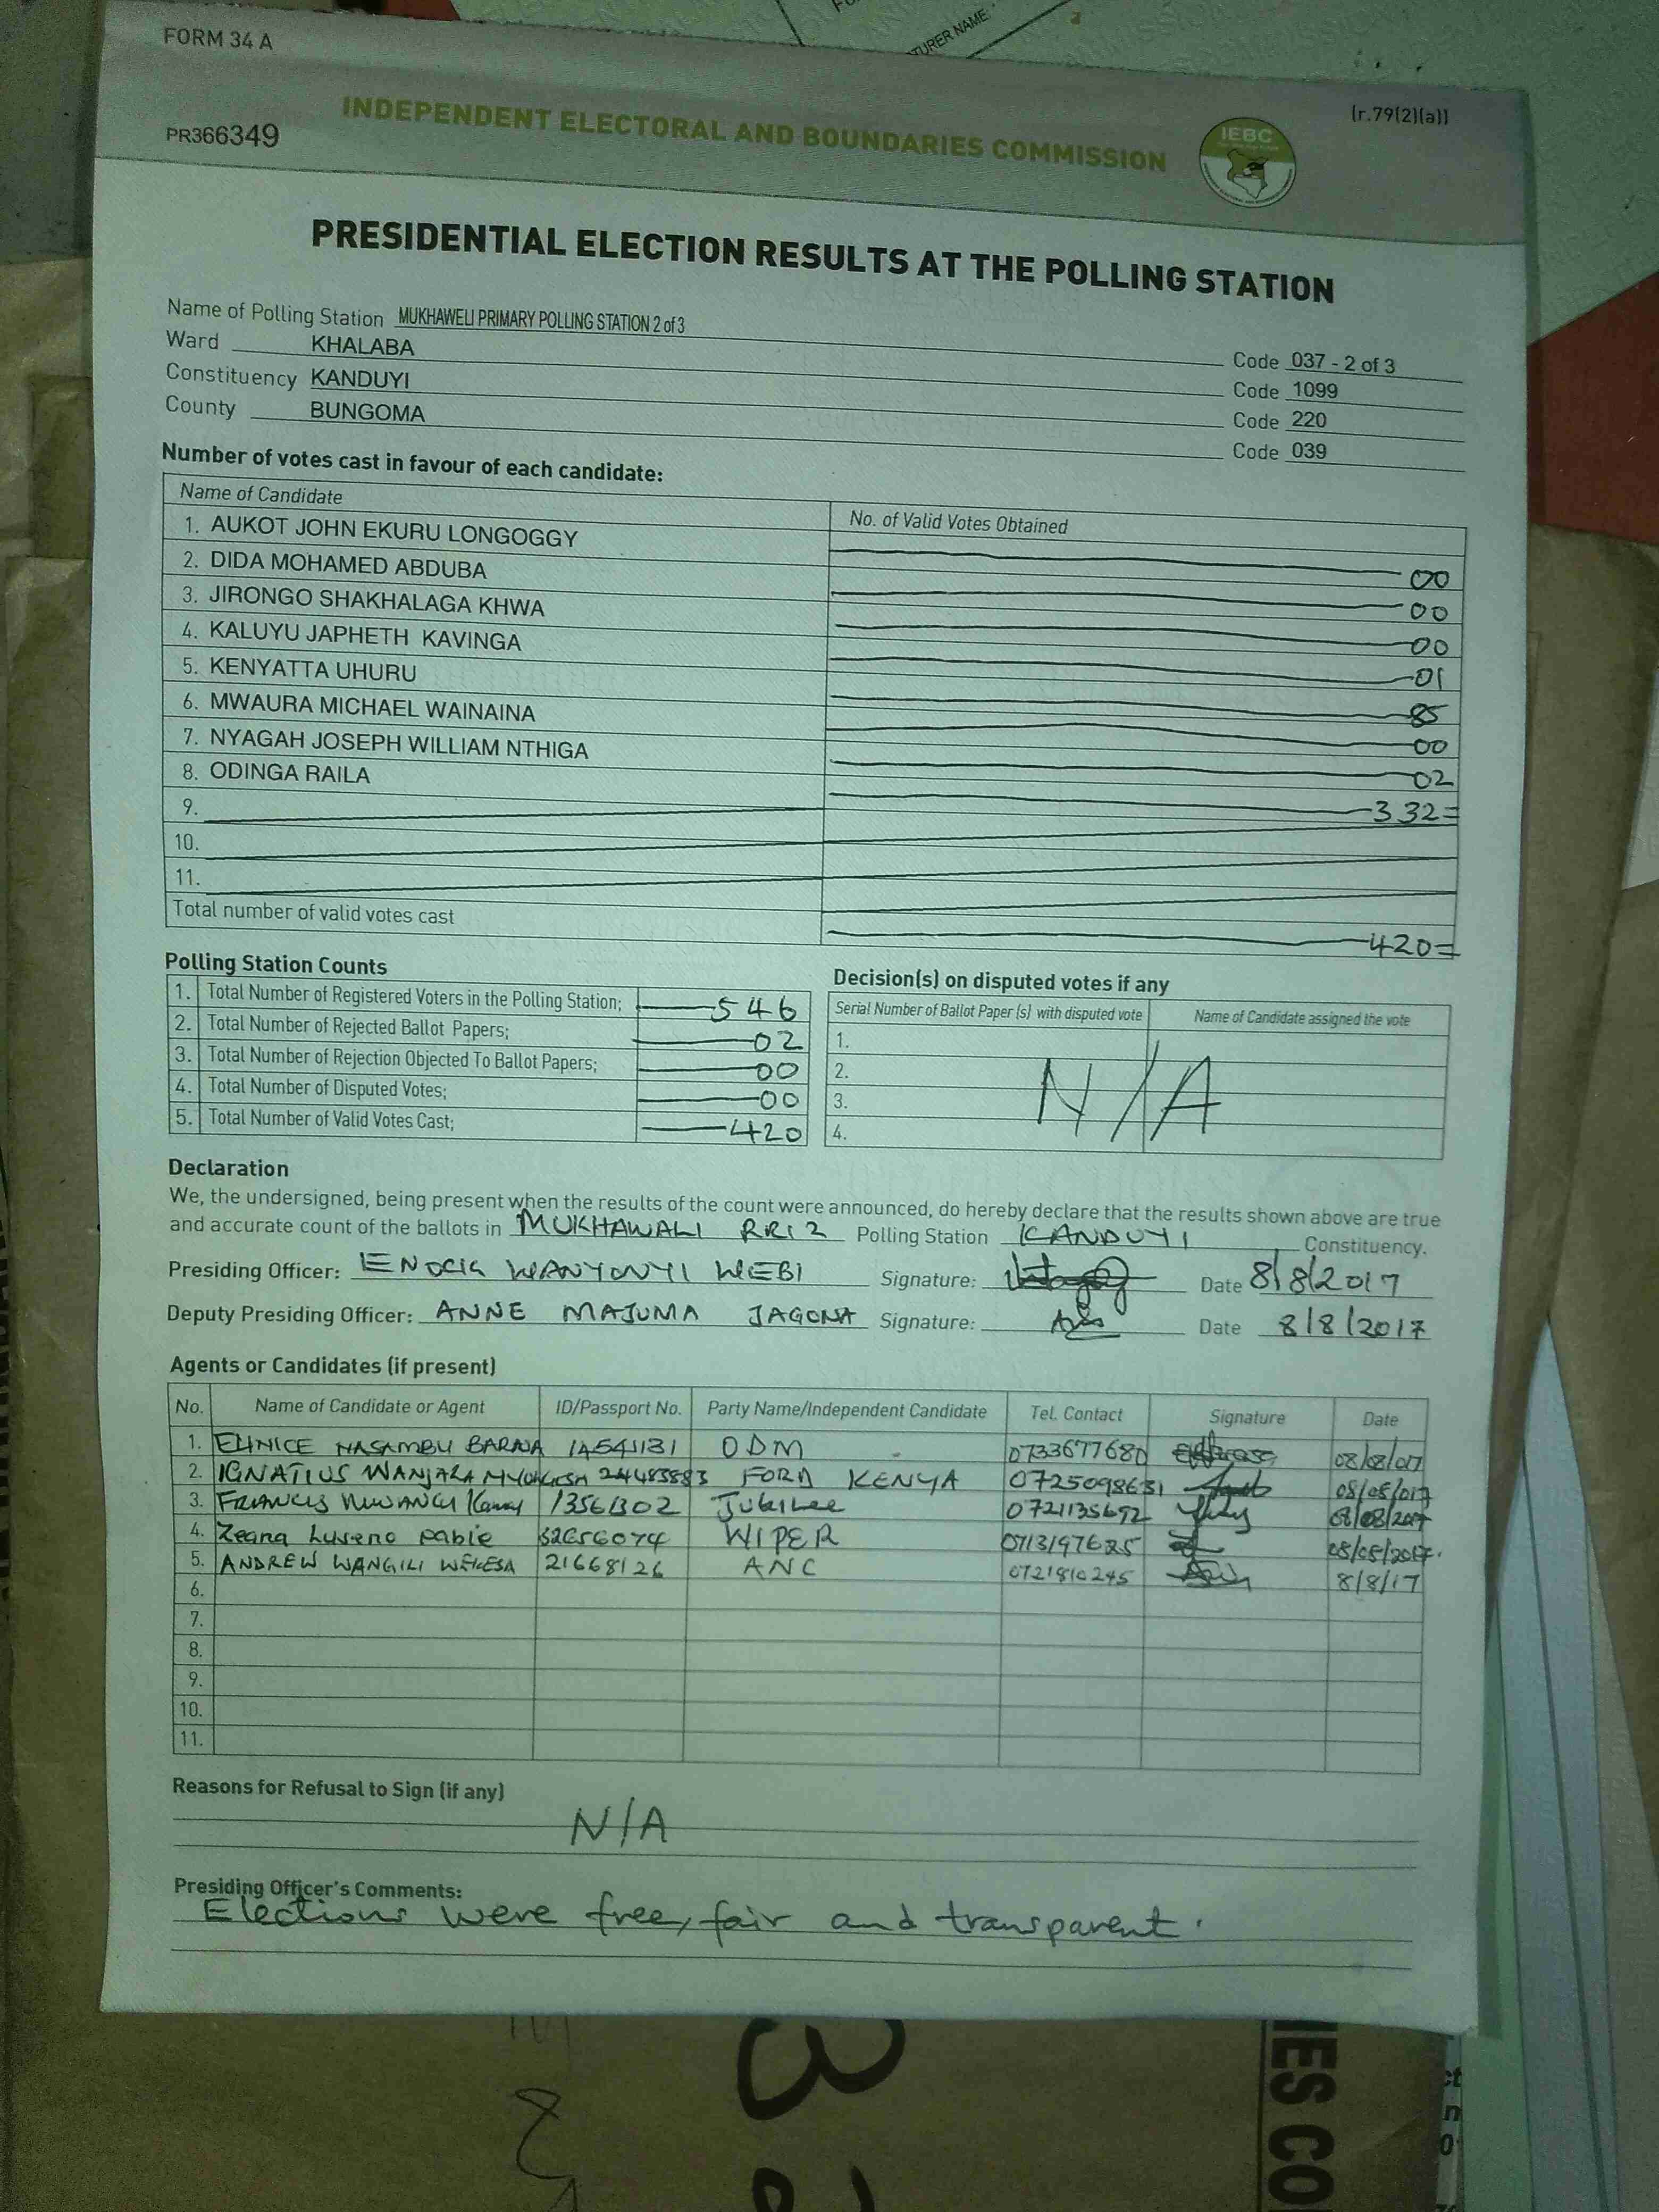 TURER NAME:
FORM 34 A
[r.79(2)(a)]
INDEPENDENT ELECTORAL AND BOUNDARIES COMMISSION
IEBC
PR366349
PRESIDENTIAL ELECTION RESULTS AT THE POLLING STATION
Name of Polling Station MUKHAWELI PRIMARY POLLING STATION 2 of 3 Code 037 - 2 of 3
Ward KHALABA Code 1099
Constituency KANDUYI Code 220
County BUNGOMA Code 039
Number of votes cast in favour of each candidate:
Name of Candidate No. of Valid Votes Obtained
1. AUKOT JOHN EKURU LONGOGGY 00
2. DIDA MOHAMED ABDUBA 00
3. JIRONGO SHAKHALAGA KHWA 00
4. KALUYU JAPHETH KAVINGA 01
5. KENYATTA UHURU 85
6. MWAURA MICHAEL WAINAINA 00
7. NYAGAH JOSEPH WILLIAM NTHIGA 02
8. ODINGA RAILA 332=
9.
10.
11.
Total number of valid votes cast 420=
Polling Station Counts
1. Total Number of Registered Voters in the Polling Station; 546
2. Total Number of Rejected Ballot Papers; 02
3. Total Number of Rejection Objected To Ballot Papers; 00
4. Total Number of Disputed Votes; 00
5. Total Number of Valid Votes Cast; 420
Decision(s) on disputed votes if any
Serial Number of Ballot Paper (s) with disputed vote Name of Candidate assigned the vote
1.
2.
3.
4.
N/A
Declaration
We, the undersigned, being present when the results of the count were announced, do hereby declare that the results shown above are true
and accurate count of the ballots in MUKHAWALI PRI 2 Polling Station KANDUYI Constituency.
Presiding Officer: ENOCK WANYONYI WEBI Signature: Date 8/8/2017
Deputy Presiding Officer: ANNE MAJUMA JAGONA Signature: Date 8/8/2017
Agents or Candidates (if present)
No. Name of Candidate or Agent ID/Passport No. Party Name/Independent Candidate Tel. Contact Signature Date
1. EUNICE NASAMBU BARASA 14541131 ODM 0733677680 08/08/017
2. IGNATIUS WANJALA 24483883 FORD KENYA 0725098631 08/08/017
3. FRANCIS MWANGI 13561302 Jubilee 0721135692 08/08/2017
4. Zeana Luseno WIPER 08/08/2017.
5. ANDREW WANGILI WEKESA 21668126 ANC 0721810245 8/8/17
6.
7.
8.
9.
10.
11.
Reasons for Refusal to Sign (if any)
N/A
Presiding Officer's Comments:
Elections were free, fair and transparent.
3
IES CO